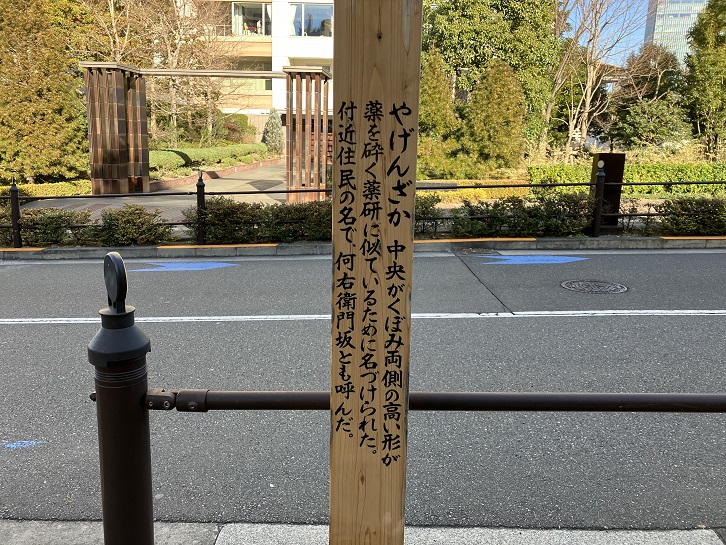 やげんざか 中央がくぼみ両側の高い形が
薬を砕く薬研に似ているために名づけられた。
付近住民の名で、何右衛門坂とも呼んだ。